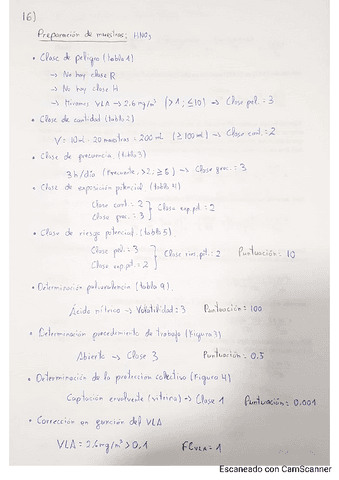 16)
Preparación de muestras: HNO3
• Clase de peligro (tabla 1)
→ No hay clase R
→ No hay clase H
→ Miramos VLA → 2.6 mg/m³ (>1; ≤10) → Clase pel. = 3
• Clase de cantidad (tabla 2)
V = 10mL · 20 muestras = 200 mL (≥100mL) → Clase cant. = 2
• Clase de frecuencia (tabla 3)
3h/día (Frecuente, >2, ≤6) → Clase frec. = 3
• Clase de exposición potencial (tabla 4)
Clase cant. = 2
Clase frec. = 3 } Clase exp. pot = 2
• Clase de riesgo potencial (tabla 5)
Clase pel. : 3
Clase exp. pot : 2 } Clase ries. pot. : 2 Puntuación: 10
• Determinación pulverulencia (tabla 9)
Ácido nítrico → Volatilidad: 3 Puntuación: 100
• Determinación procedimiento de trabajo (Figura 3)
Abierto → Clase 3 Puntuación: 0.5
• Determinación de la protección colectiva (Figura 4)
Captación envolvente (vitrina) → Clase 1 Puntuación: 0.001
• Corrección en función del VLA
VLA = 2.6 mg/m³ > 0,1 FC VLA = 1
Escaneado con CamScanner